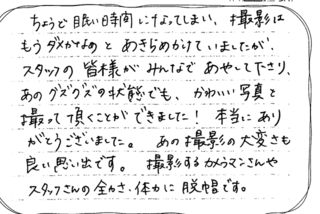 ちょうど眠い時間になってしまい、撮影は
もうダメかなぁとあきらめかけていましたが、
スタッフの皆様がみんなであやして下さり、
あのグズグズの状態でも、かわいい写真を
撮って頂くことができました！本当にあり
がとうございました。あの撮影の大変さも
良い思い出です。撮影するカメラマンさんや
スタッフさんの全力さ、体力に脱帽です。